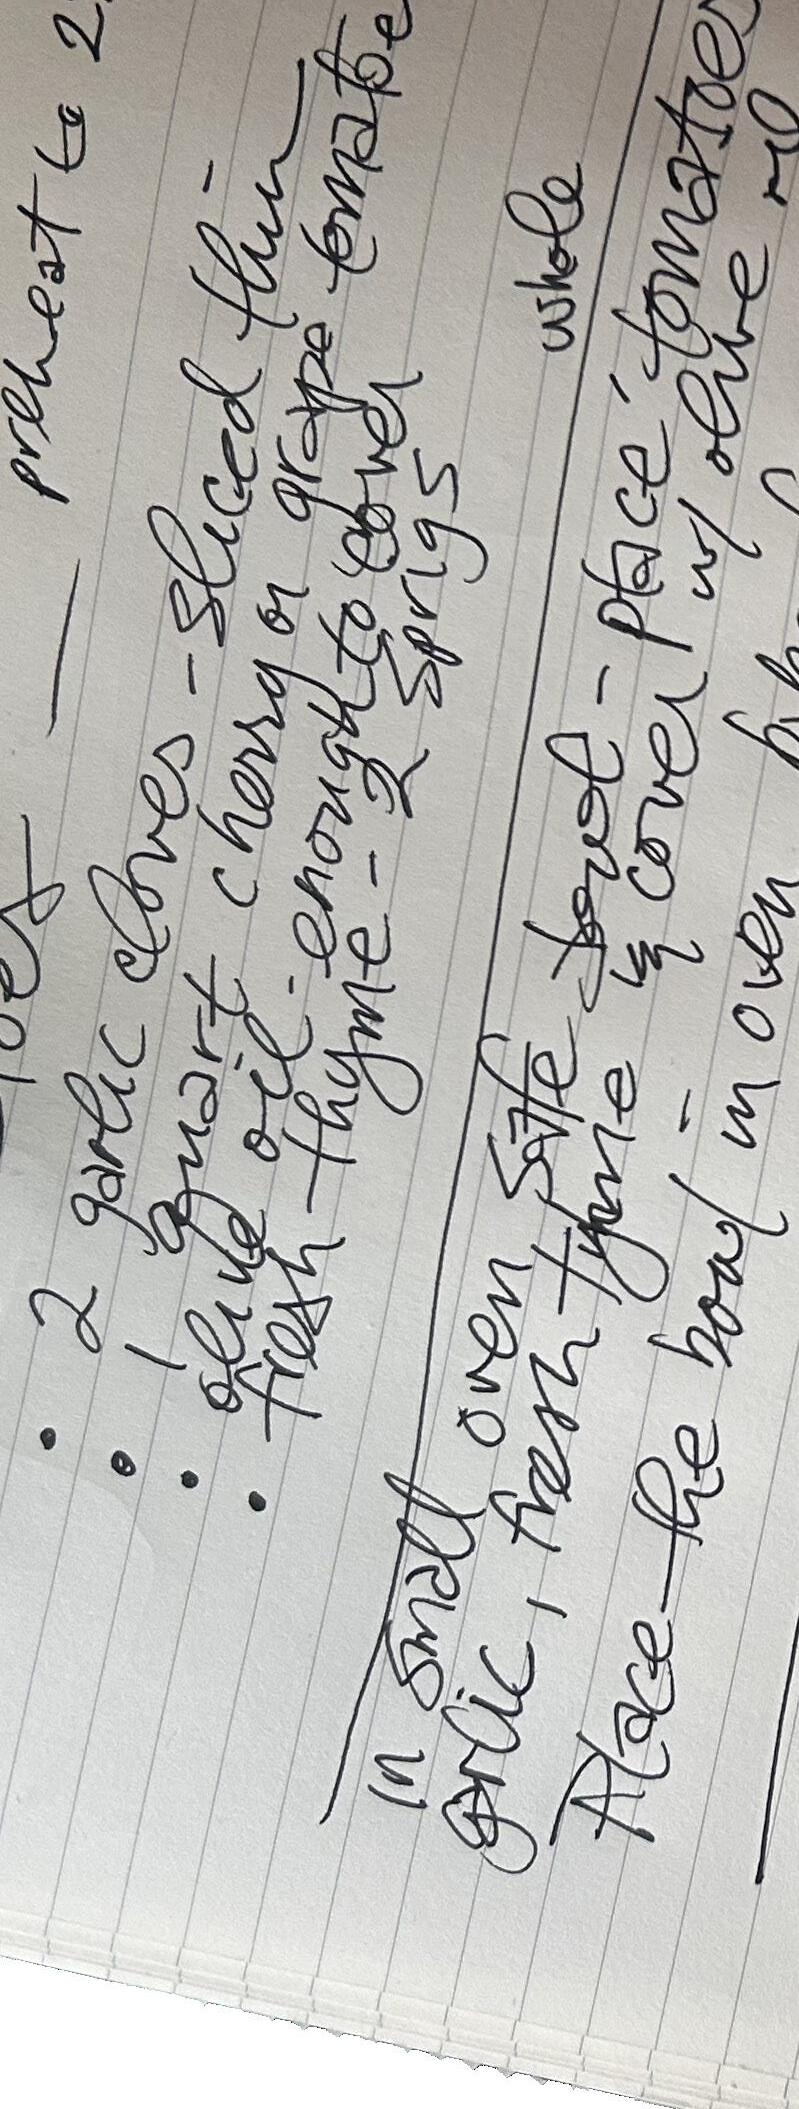 preheat to 2
• 2 garlic cloves - sliced thin
• 1 quart cherry or grape tomatoe
• olive oil - enough to cover
• fresh thyme - 2 sprigs
whole
in small oven safe bowl - place tomatoes
garlic, fresh tyme & cover w/ olive
Place the bowl in oven